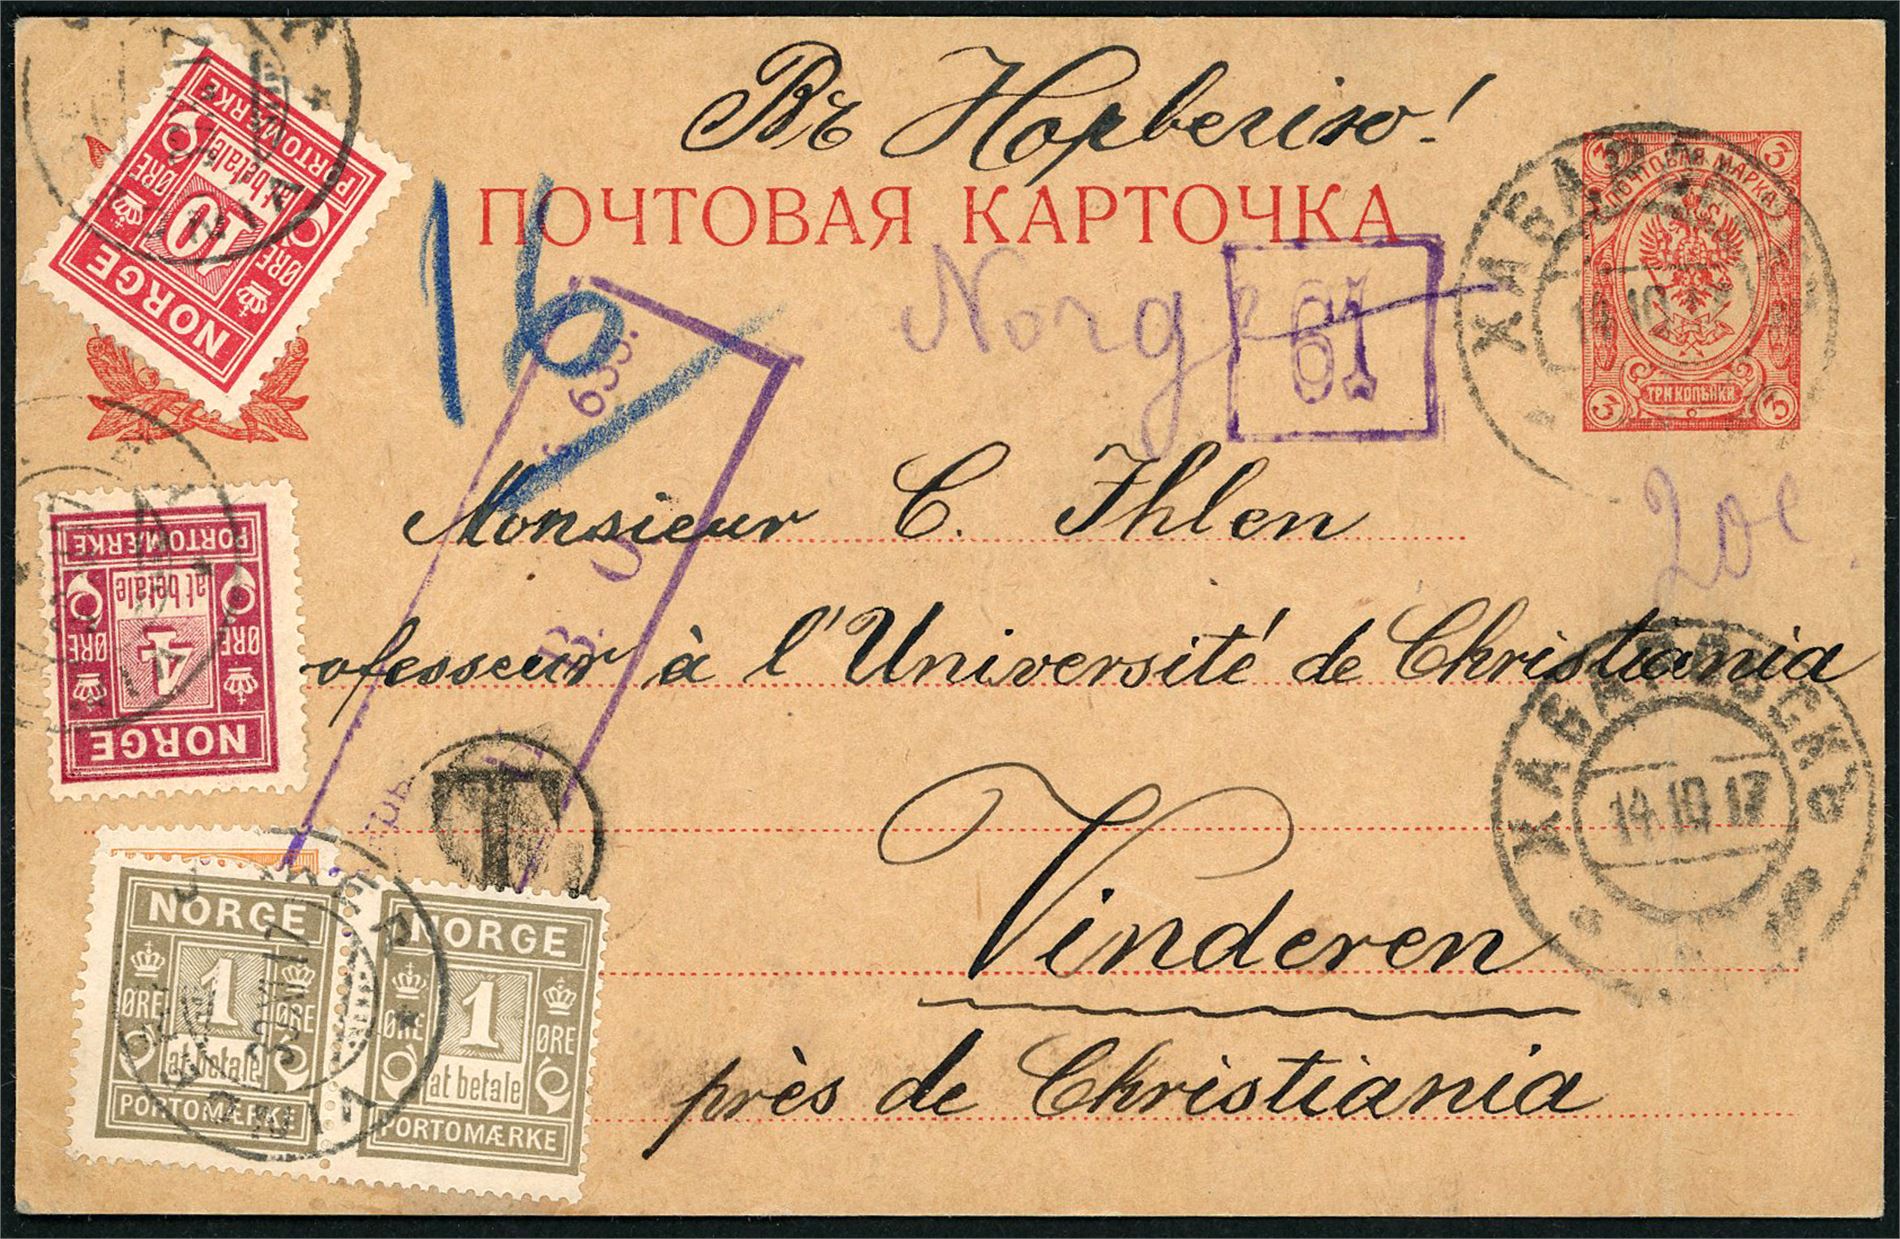 Въ Норвегiю!
ПОЧТОВАЯ КАРТОЧКА
ПОЧТОВАЯ МАРКА
3 3
3 ТРИ КОПѢЙКИ 3
16
Norge
61
633.
20e
Monsieur C. Ihlen
ofesseur à l'Université de Christiania
Vinderen
près de Christiania
ХАБАРОВСКЪ
14 10
ХАБАРОВСКЪ
14 10 17
T
NORGE
10
ØRE ØRE
at betale
PORTOMÆRKE
NORGE
4
ØRE ØRE
at betale
PORTOMÆRKE
NORGE
1
ØRE ØRE
at betale
PORTOMÆRKE
NORGE
1
ØRE ØRE
at betale
PORTOMÆRKE
VINDEREN